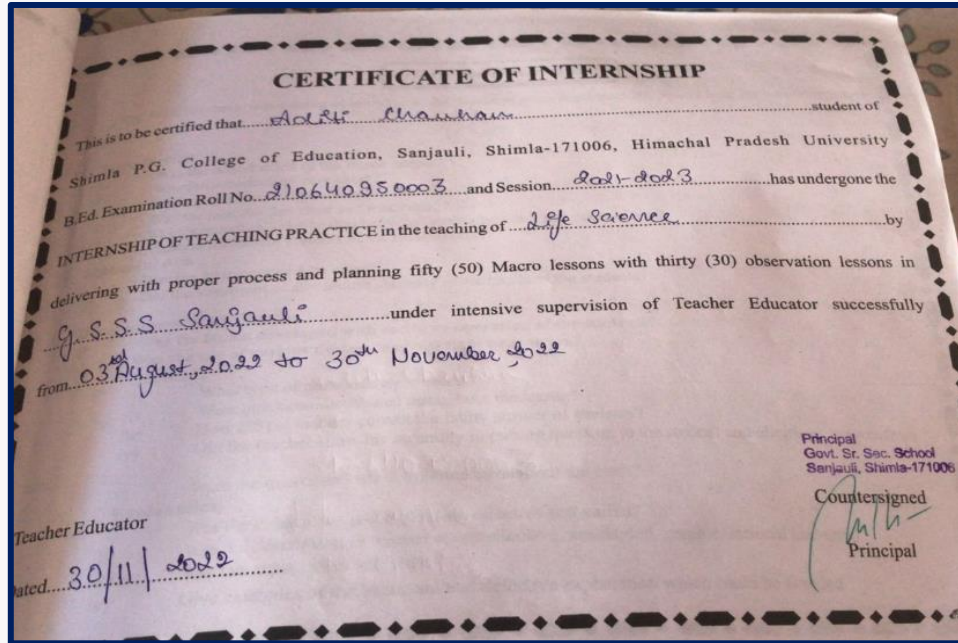 CERTIFICATE OF INTERNSHIP
This is to be certified that....Aditi Chauhan....student of
Shimla P.G. College of Education, Sanjauli, Shimla-171006, Himachal Pradesh University
B.Ed. Examination Roll No..210640950003..and Session....2021-2023....has undergone the
INTERNSHIP OF TEACHING PRACTICE in the teaching of....Life Science....by
delivering with proper process and planning fifty (50) Macro lessons with thirty (30) observation lessons in
....G.S.S.S Sanjauli....under intensive supervision of Teacher Educator successfully
from...03rd August, 2022 to 30th November, 2022
Principal
Govt. Sr. Sec. School
Sanjauli, Shimla-171006
Countersigned
Principal
Teacher Educator
Dated....30/11/2022....